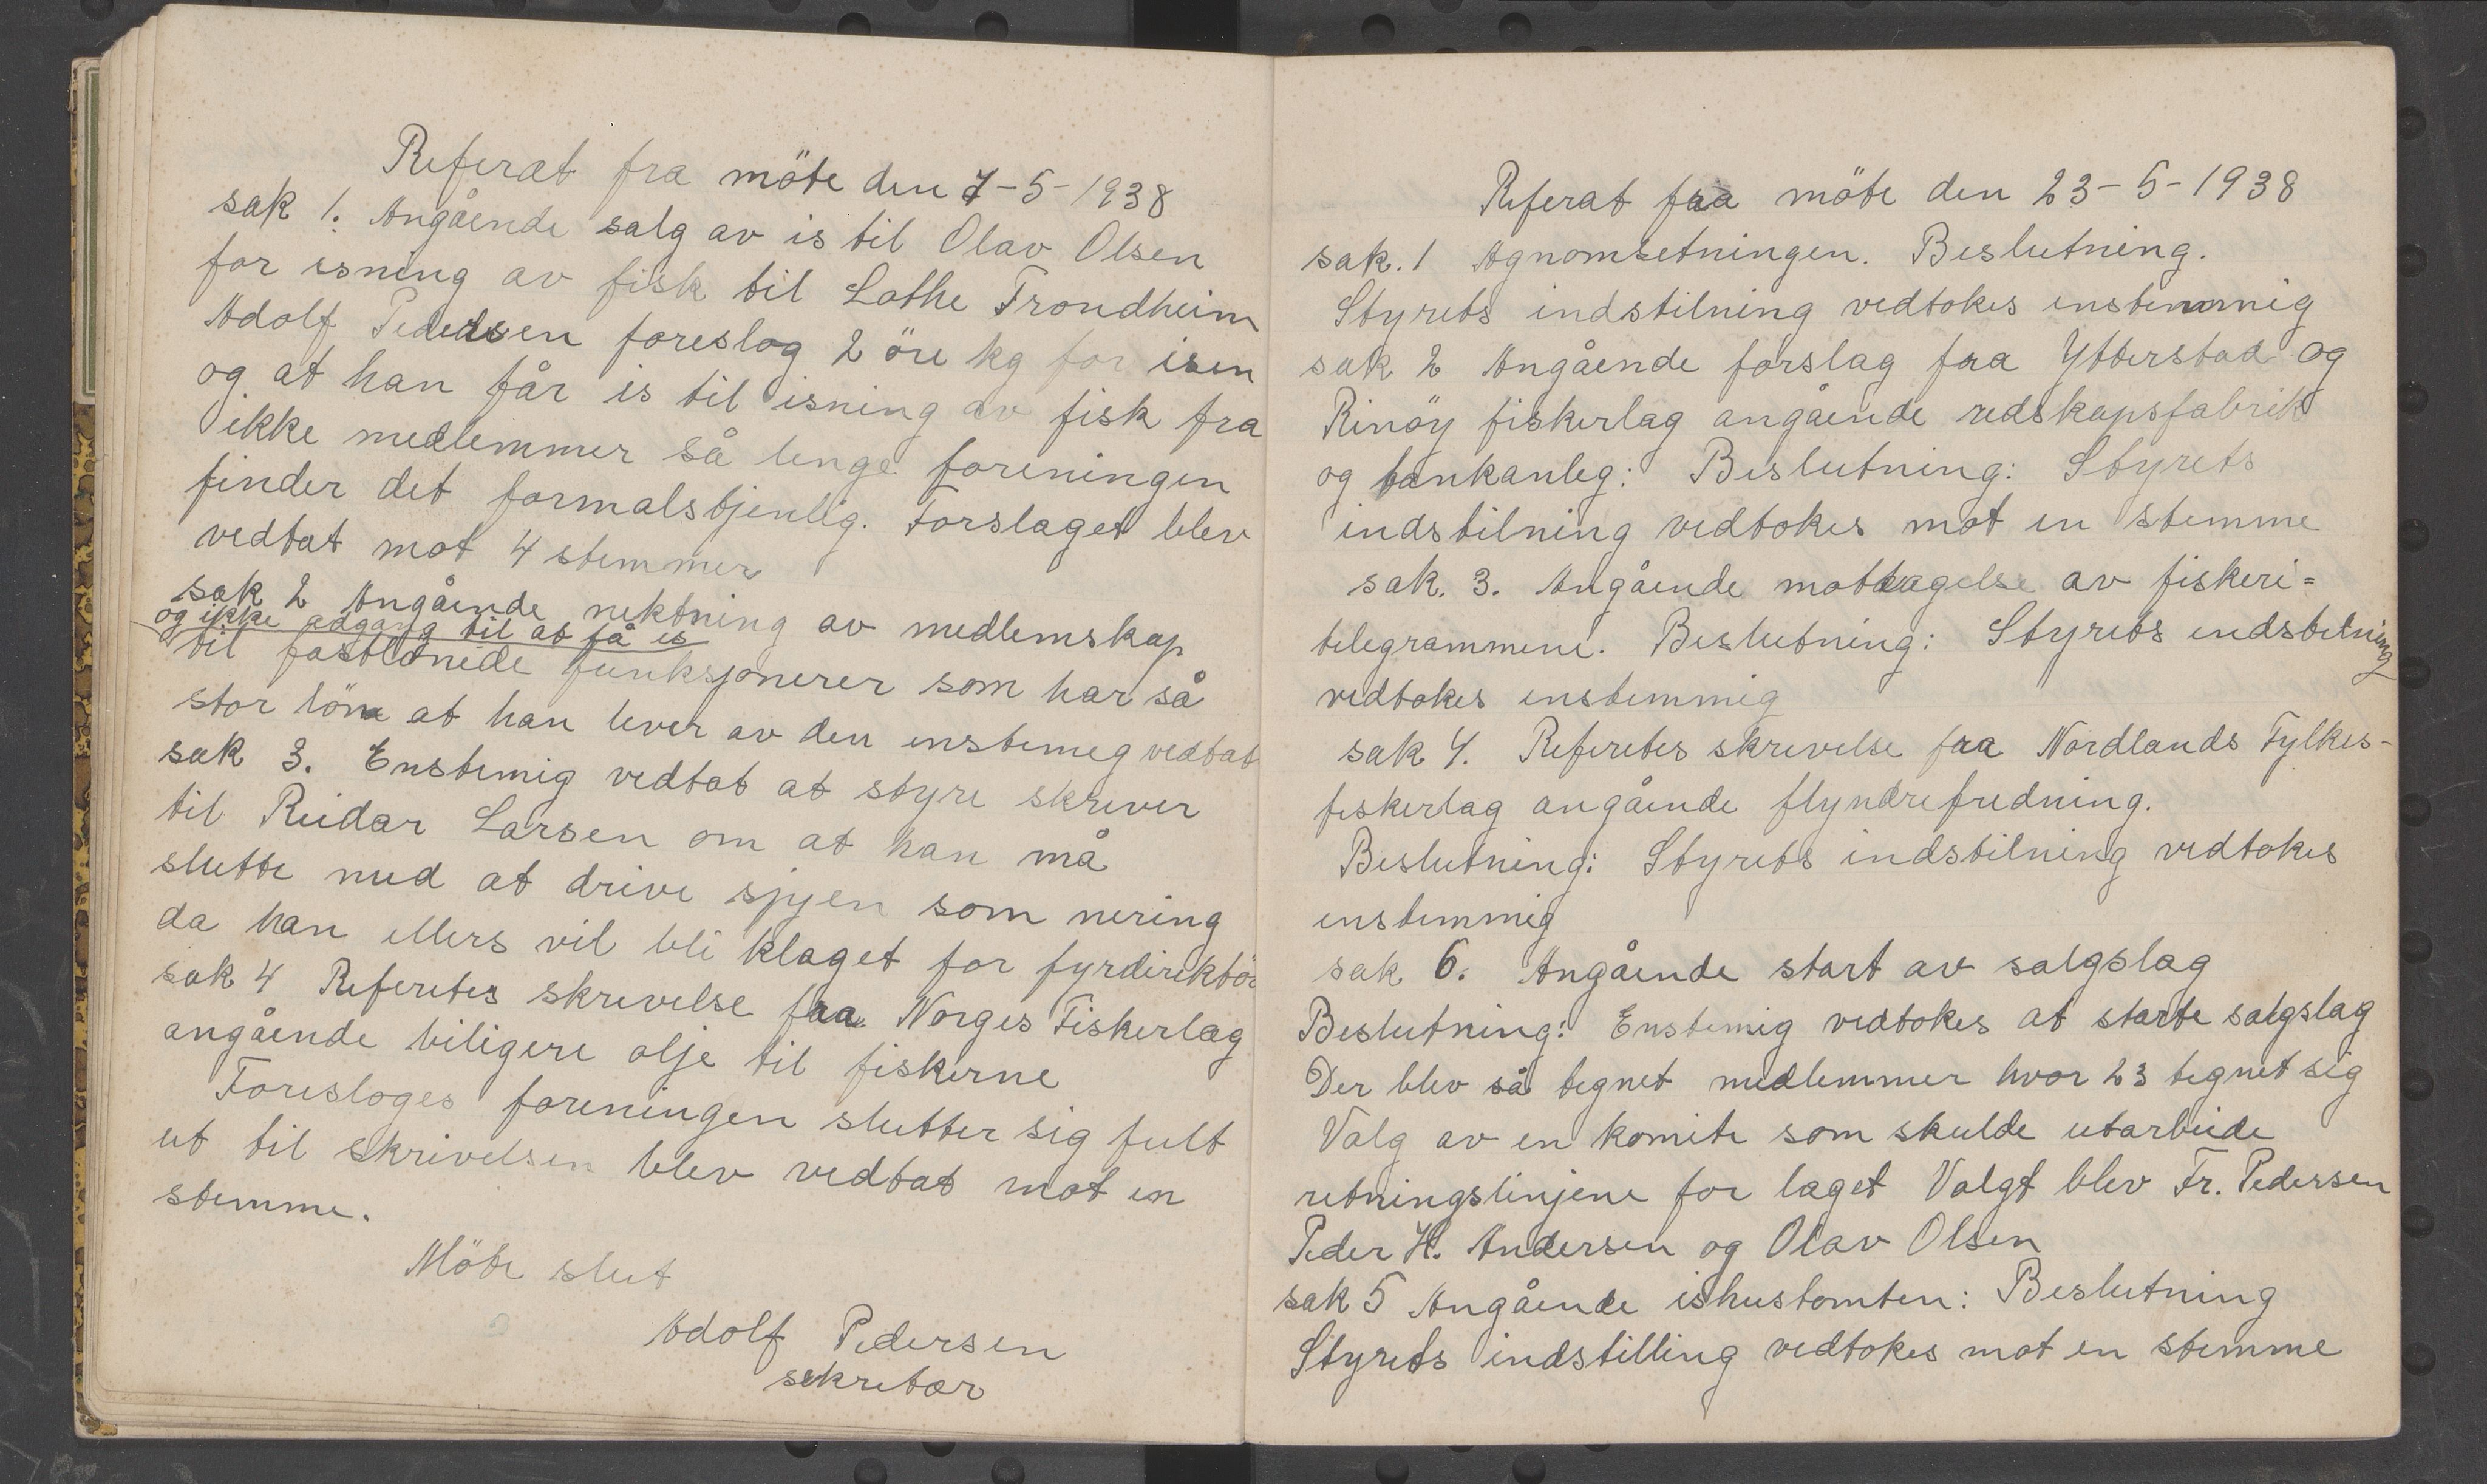 Referat fra möte den 7-5-1938
sak 1. Angående salg av is til Olav Olsen
for isning av fisk til Lothe Trondheim
Adolf Pedersen foreslog 2 öre kg for isen
og at han får is til isning av fisk fra
ikke medlemmer så lenge foreningen
finder det formalstjenlig. Forslaget blev
vedtat mot 4 stemmer
sak 2 Angående nektning av medlemskap
og ikke adgang til at få is
til fastlönede funksjonerer som har så
stor lön at han lever av den enstemeg vedtat
sak 3. Enstemig vedtat at styre skriver
til Reidar Larsen om at han må
slutte med at drive sjyen som nering
da han ellers vil bli klaget for fyrdirektör
sak 4 Referetes skrevelse fra Norges Fiskerlag
angående biligere olje til fiskerne
Foresloges foreningen slutter sig fult
ut til skrivelsen blev vedtat mot en
stemme.
Möte slut
Adolf Pedersen
sekretær
Referat fra möte den 23-5-1938
sak. 1 Agnomsetningen. Beslutning.
Styrets indstilning vedtokes enstemmig
sak 2 Angående forslag fra Ytterstad og
Rinöy fiskerlag angående redskapsfabrik
og tankanleg: Beslutning: Styrets
indstilning vedtokes mot en stemme
sak. 3. Angående mottagelse av fiskeri=
telegrammene. Beslutning: Styrets indstelning
vedtokes enstemmig
sak 4. Referetes skrevelse fra Nordlands Fylkes-
fiskerlag angående flyndrefredning.
Beslutning: Styrets indstilning vedtokes
enstemmig
sak 6. Angående start av salgslag
Beslutning: Enstemig vedtokes at starte salgslag
Der blev så tegnet medlemmer hvor 23 tegnet sig
Valg av en komite som skulde utarbeide
retningslinjene for laget Valgt blev Fr. Pedersen
Peder H. Andersen og Olav Olsen
sak 5 Angående ishustomten: Beslutning
Styrets indstilling vedtokes mot en stemme